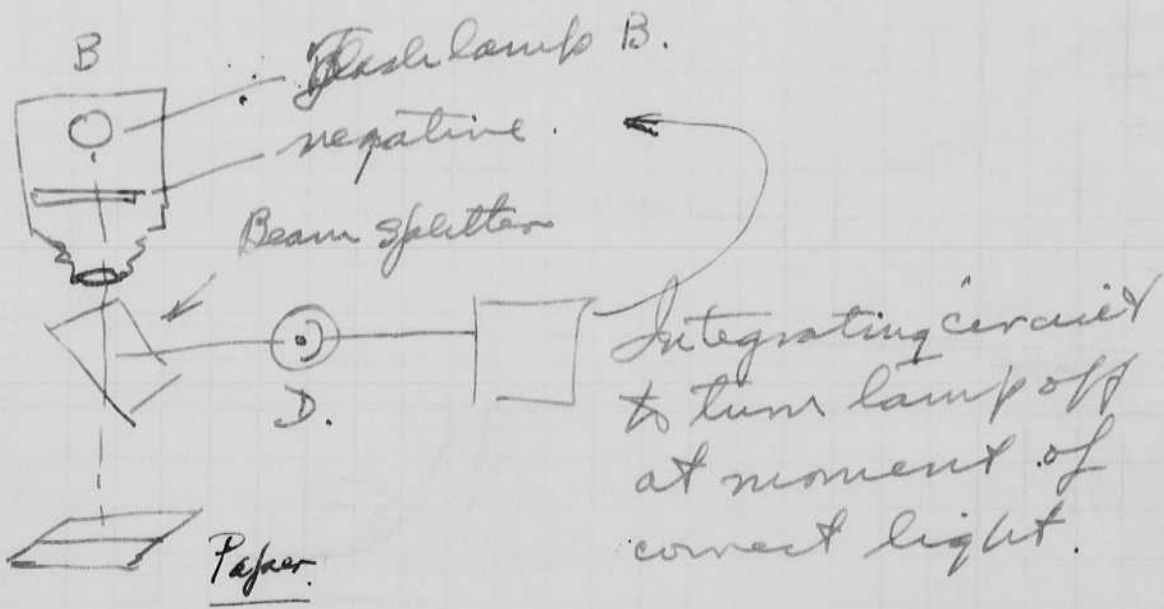 B
Flash lamp B.
negative.
Beam splitter
D.
Integrating circuit
to turn lamp off
at moment of
correct light.
Paper.